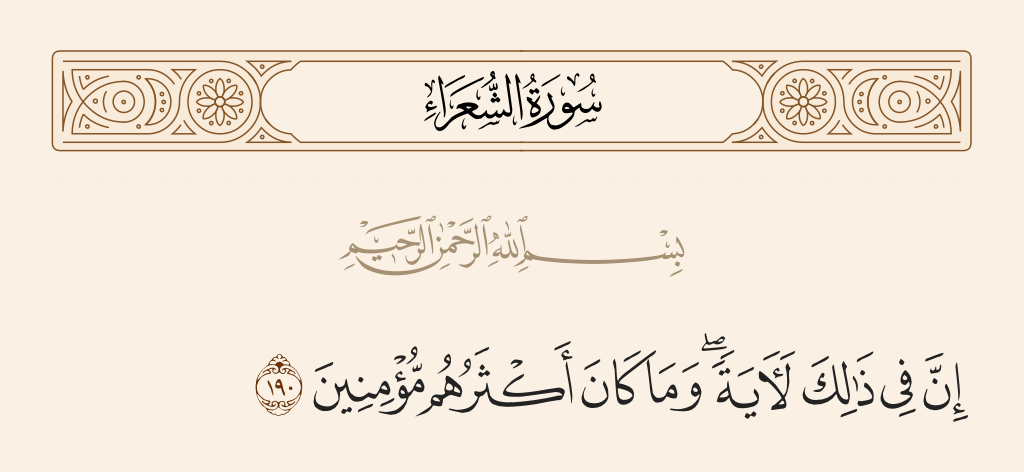 سُورَةُ الشُّعَرَاءِ
بِسْمِ ٱللَّهِ ٱلرَّحْمَٰنِ ٱلرَّحِيمِ
إِنَّ فِى ذَٰلِكَ لَـَٔايَةً ۖ وَمَا كَانَ أَكْثَرُهُم مُّؤْمِنِينَ ١٩٠